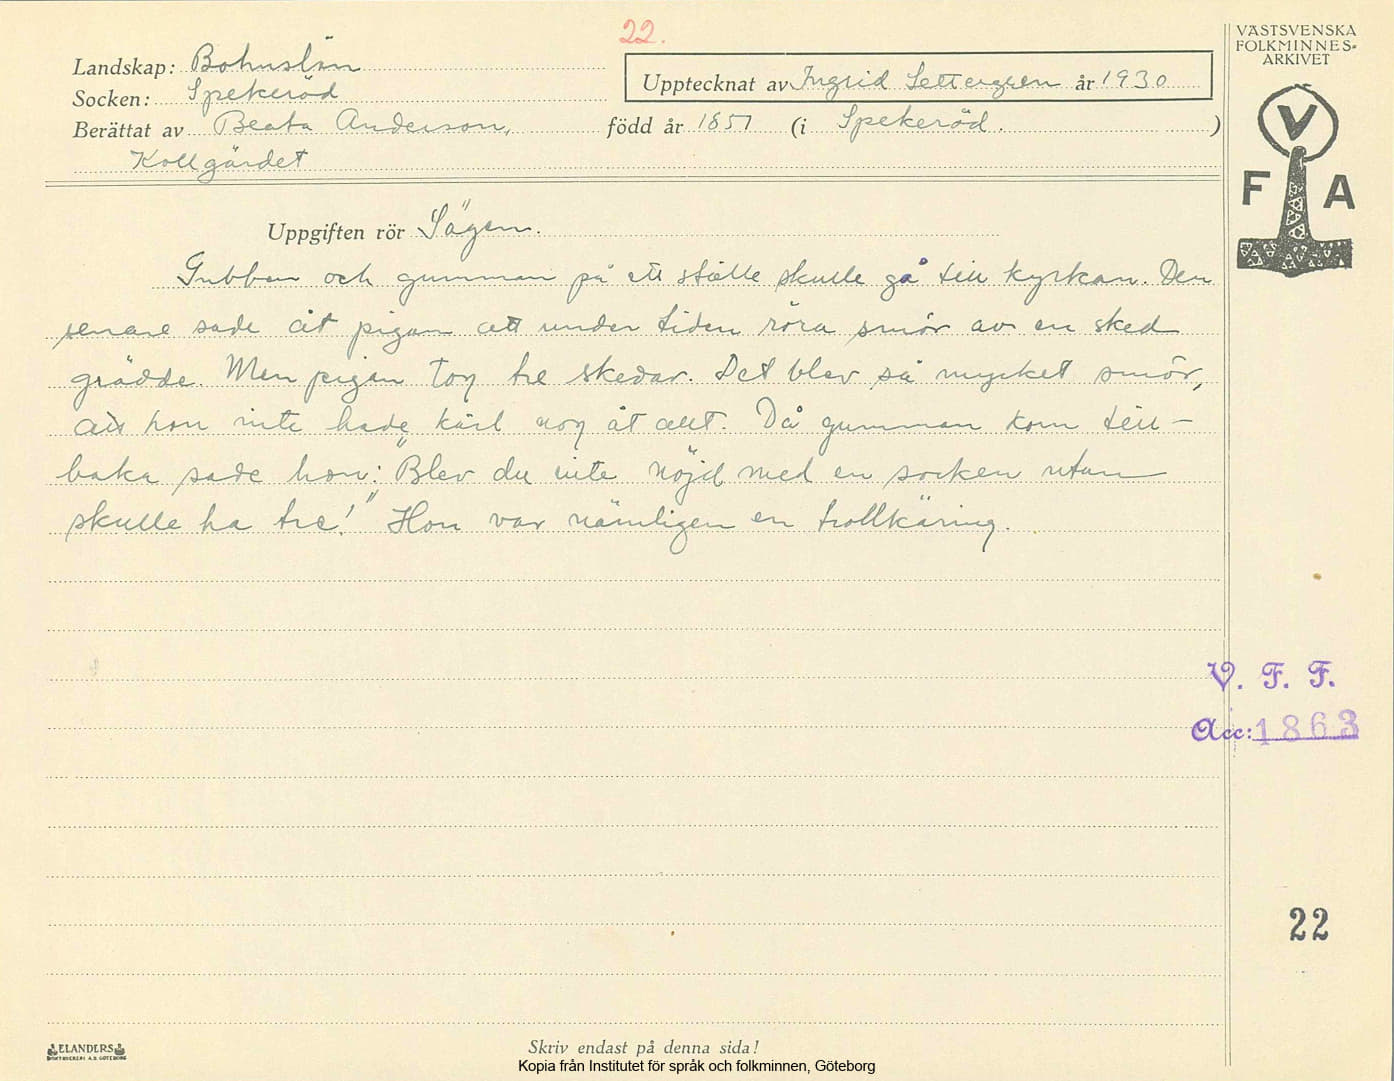 22.
Landskap: Bohuslän
Socken: Spekeröd
Berättat av Beata Anderson,
Kollgärdet
Upptecknat av Ingrid Settergren år 1930
född år 1857 (i Spekeröd.)
Uppgiften rör Sägen.
Gubben och gumman på ett ställe skulle gå till kyrkan. Den
senare sade åt pigan att under tiden röra smör av en sked
grädde. Men pigan tog tre skedar. Det blev så mycket smör,
att hon inte hade kärl nog åt allt. Då gumman kom till-
baka sade hon: "Blev du inte nöjd med en socken utan
skulle ha tre!" Hon var nämligen en trollkäring.
VÄSTSVENSKA
FOLKMINNES-
ARKIVET
V
F A
V. F. F.
Acc: 1863
22
ELANDERS
BOKTRYCKERI A.B. GÖTEBORG
Skriv endast på denna sida!
Kopia från Institutet för språk och folkminnen, Göteborg